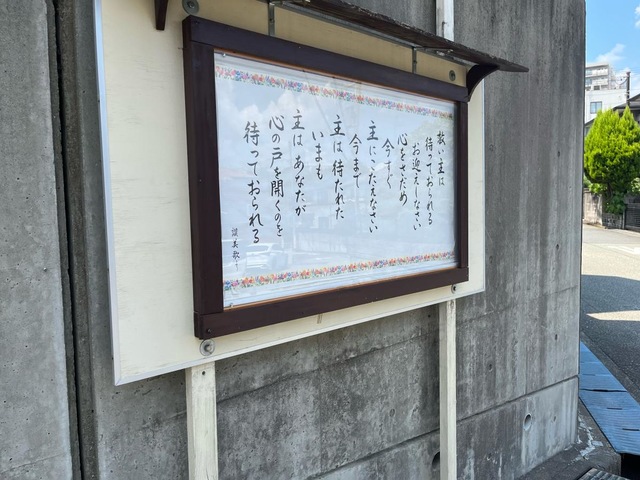 救い主は
待っておられる
お迎えしなさい
心をさだめ
今すぐ
主にこたえなさい
今まで
主は待たれた
いまも
主は あなたが
心の戸を開くのを
待っておられる
讃美歌より